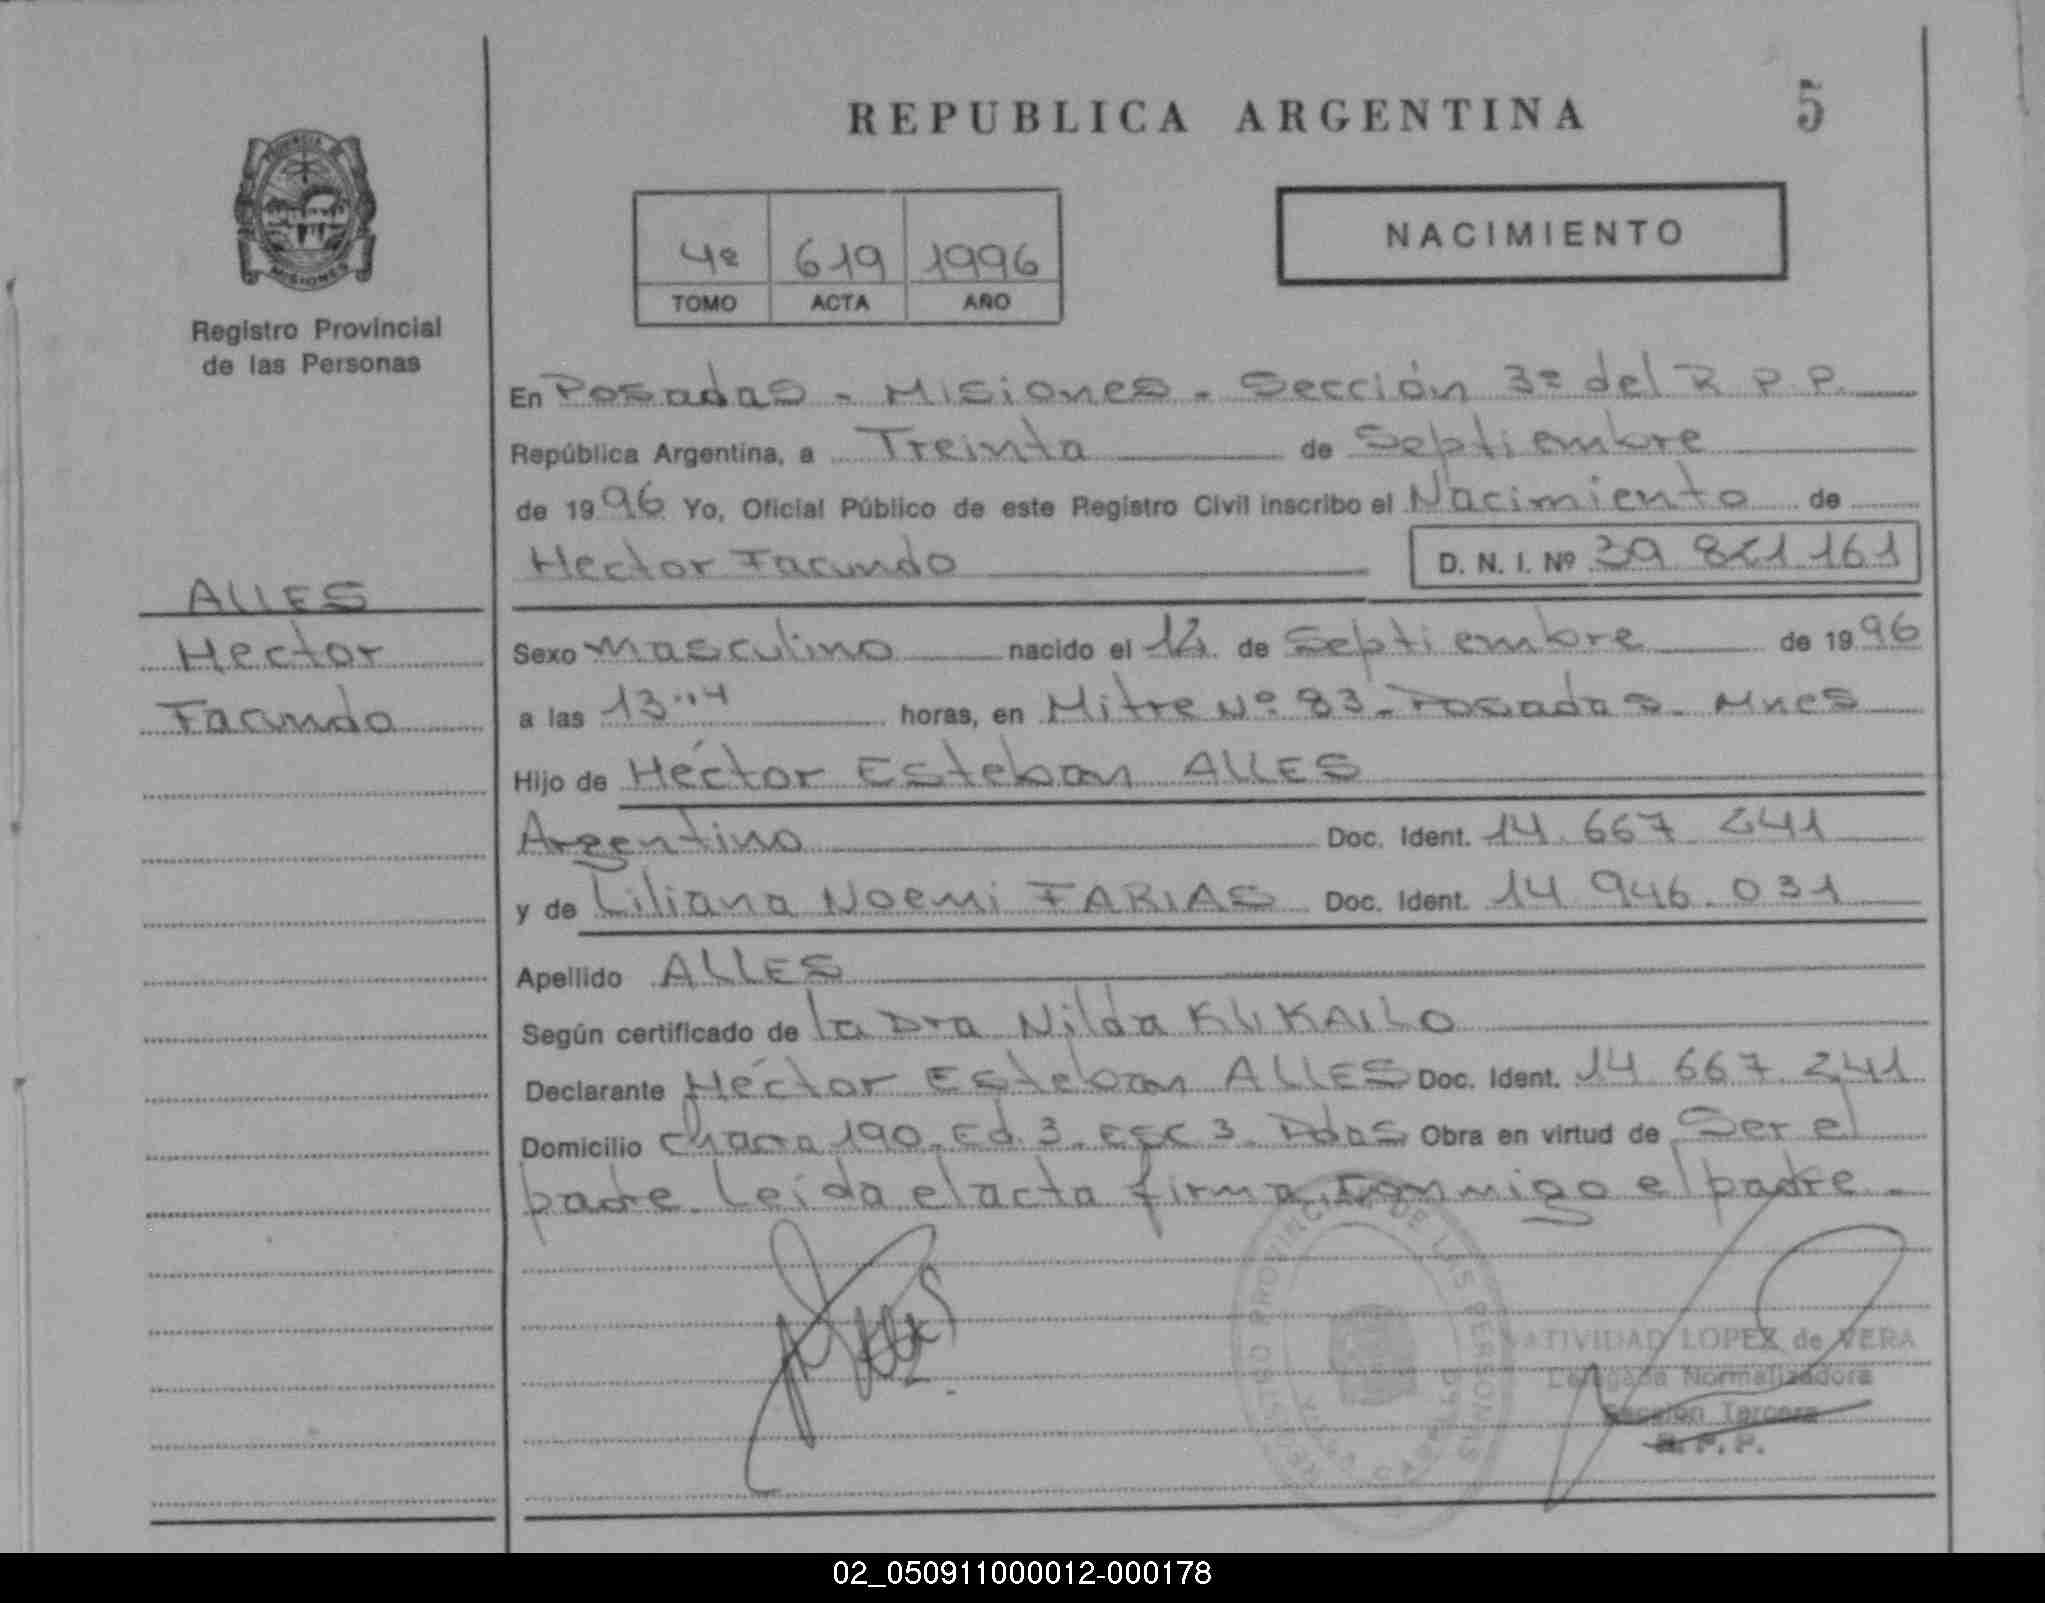 REPUBLICA ARGENTINA
5
PROVINCIA DE
MISIONES
Registro Provincial
de las Personas
4º 619 1996
TOMO ACTA AÑO
NACIMIENTO
En Posadas - Misiones - Sección 3ª del R.P.P.
República Argentina, a Treinta de Septiembre
de 1996 Yo, Oficial Público de este Registro Civil inscribo el Nacimiento de
Hector Facundo D. N. I. Nº 39 161
ALLES
Hector
Facundo
Sexo masculino nacido el de Septiembre de 1996
a las 13 horas, en Mitre Nº 83 - Posadas - Mnes
Hijo de Héctor Esteban ALLES
Argentino Doc. Ident. 14.667 241
y de Liliana Noemi FARIAS Doc. Ident. 14 946.031
Apellido ALLES
Según certificado de la Dra Nilda
Declarante Héctor Esteban ALLES Doc. Ident. 14 667 241
Domicilio chacra 190. Ed. 3. Esc 3. Pdas Obra en virtud de Ser el
padre. Leída el acta firma conmigo el padre.-
REGISTRO PROVINCIAL DE LAS PERSONAS
NATIVIDAD LOPEZ de VERA
Delegada Normalizadora
Sección Tercera
R. P. P.
02_050911000012-000178